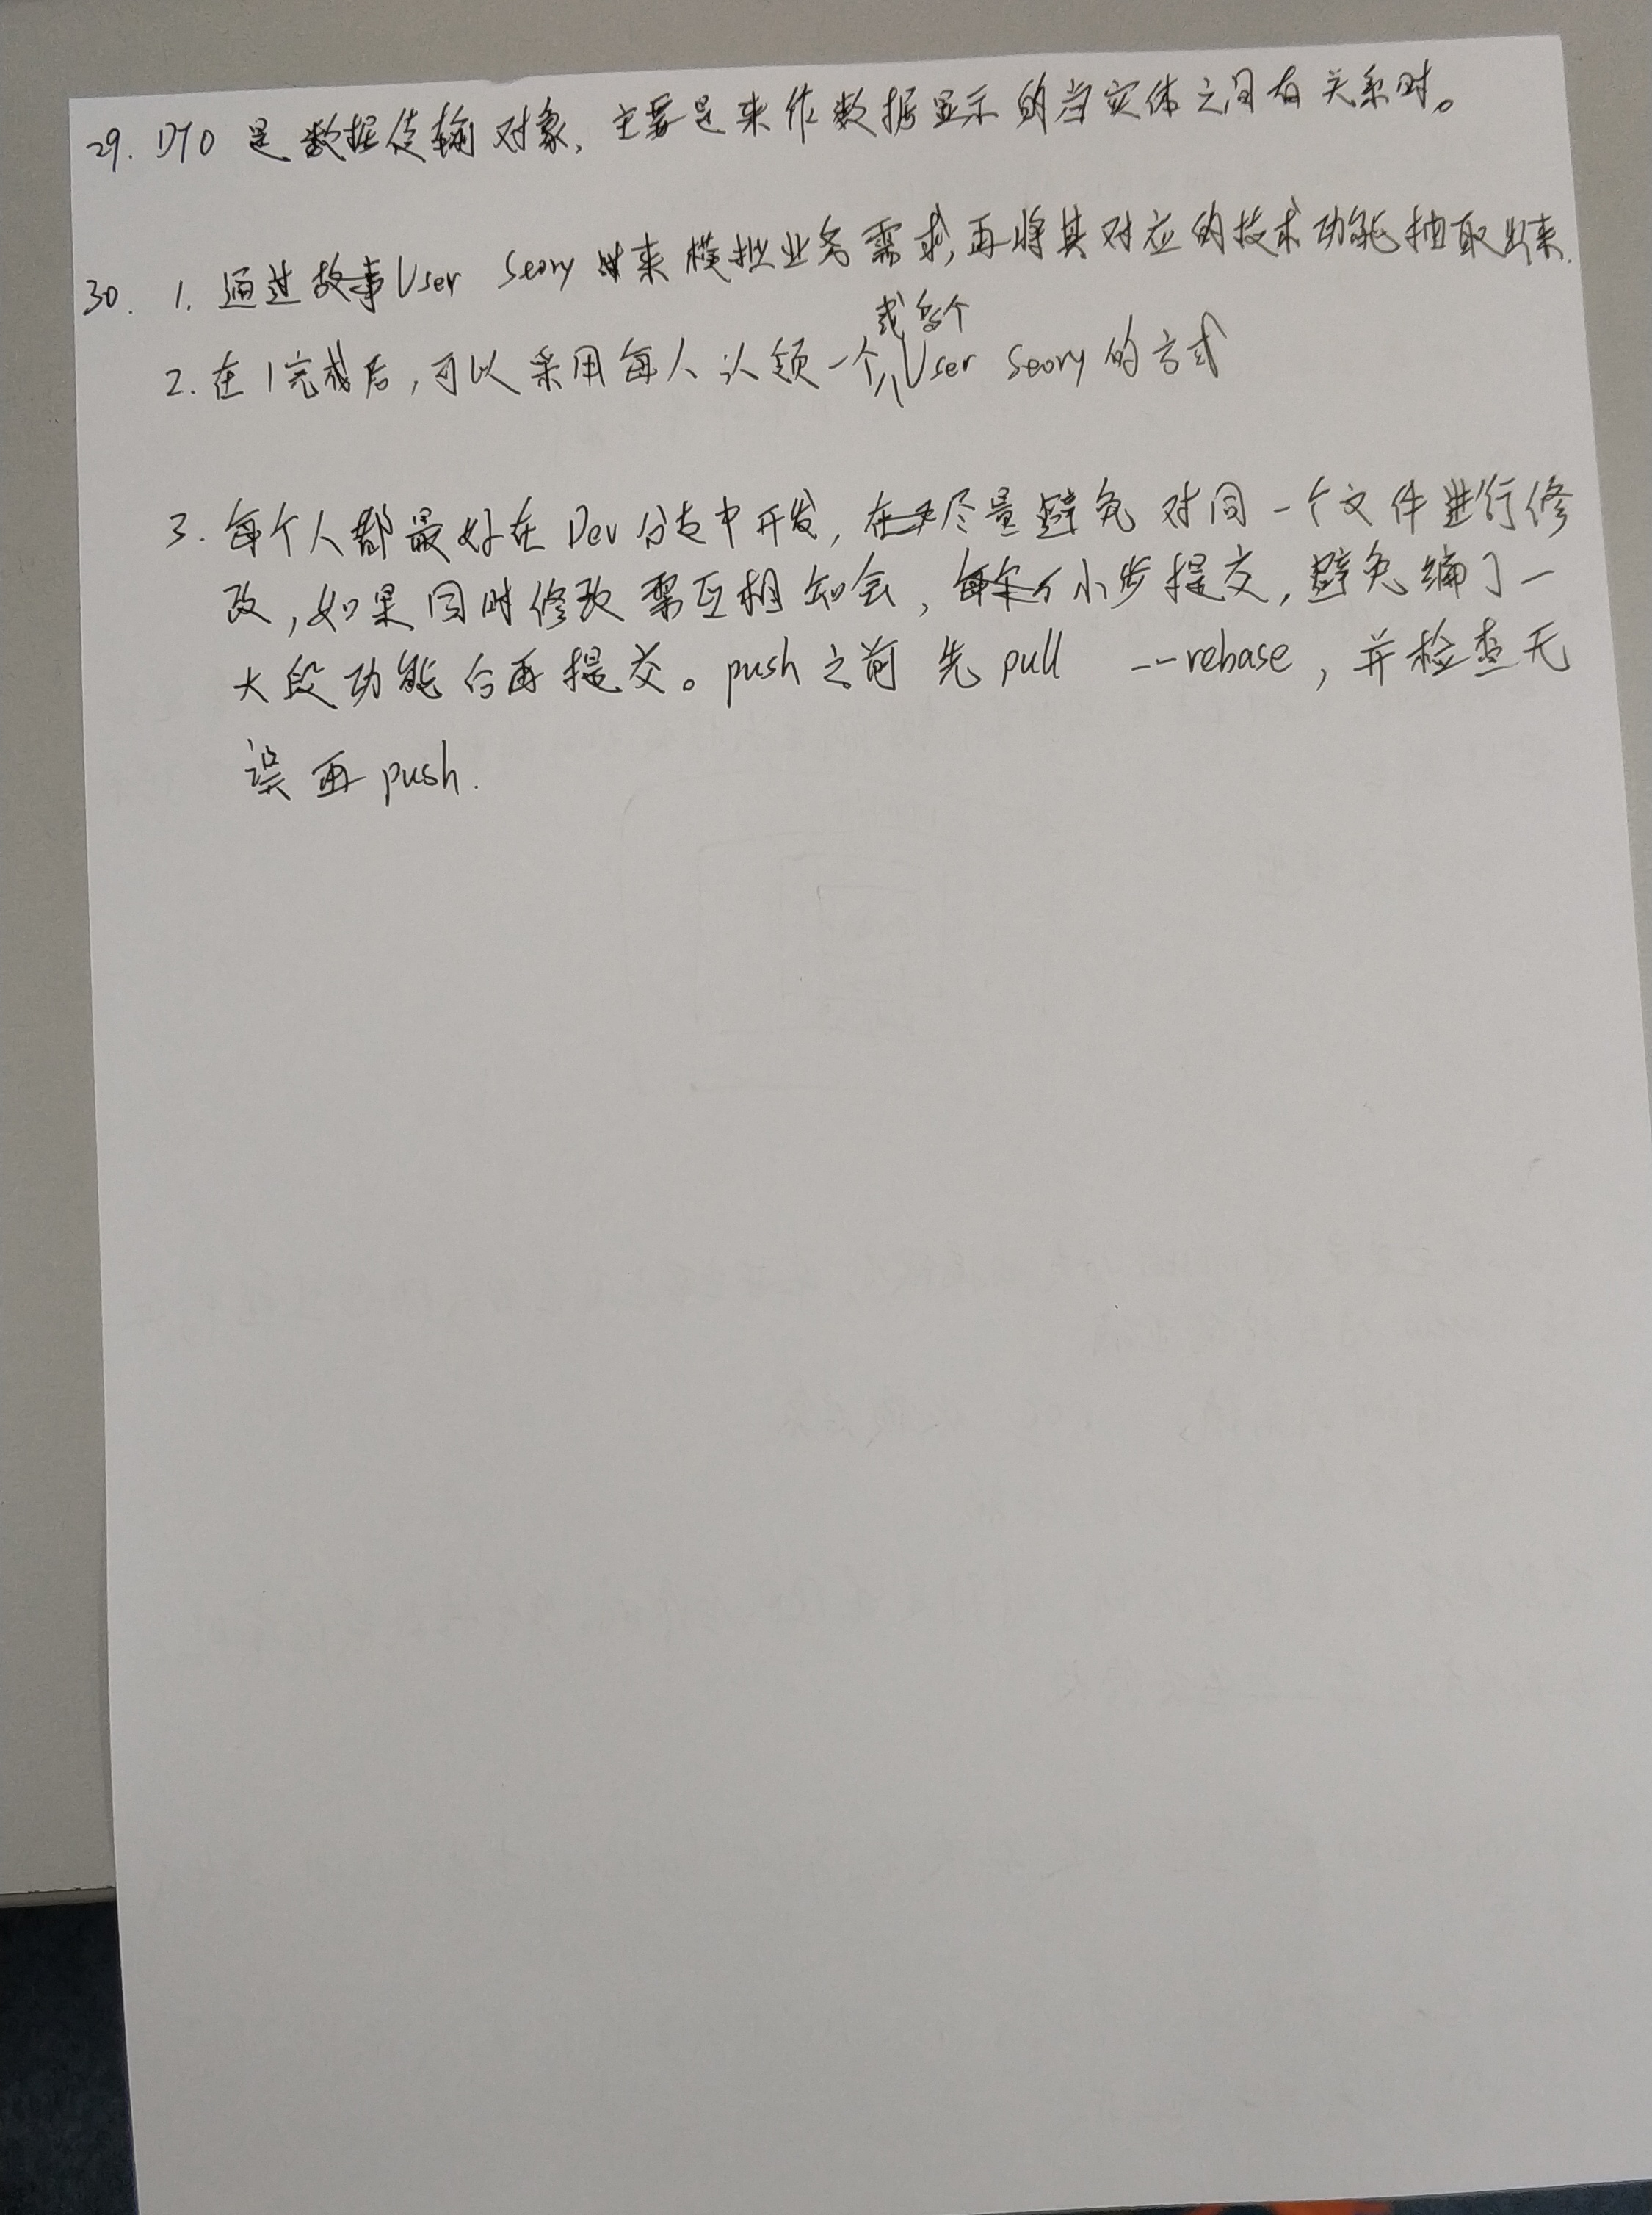 29. DTO 是数据传输对象, 主要是来作数据显示的当实体之间有关系时。
30. 1. 通过故事User Seory 来模拟业务需求,再将其对应的技术功能抽取出来.
或多个
2. 在1完成后,可以采用每人认领一个User Seory的方式
3. 每个人都最好在Dev分支中开发, 尽量避免对同一个文件进行修
改,如果同时修改需互相知会, 小步提交,避免编了一
大段功能后再提交。push之前先pull --rebase, 并检查无
误再push.